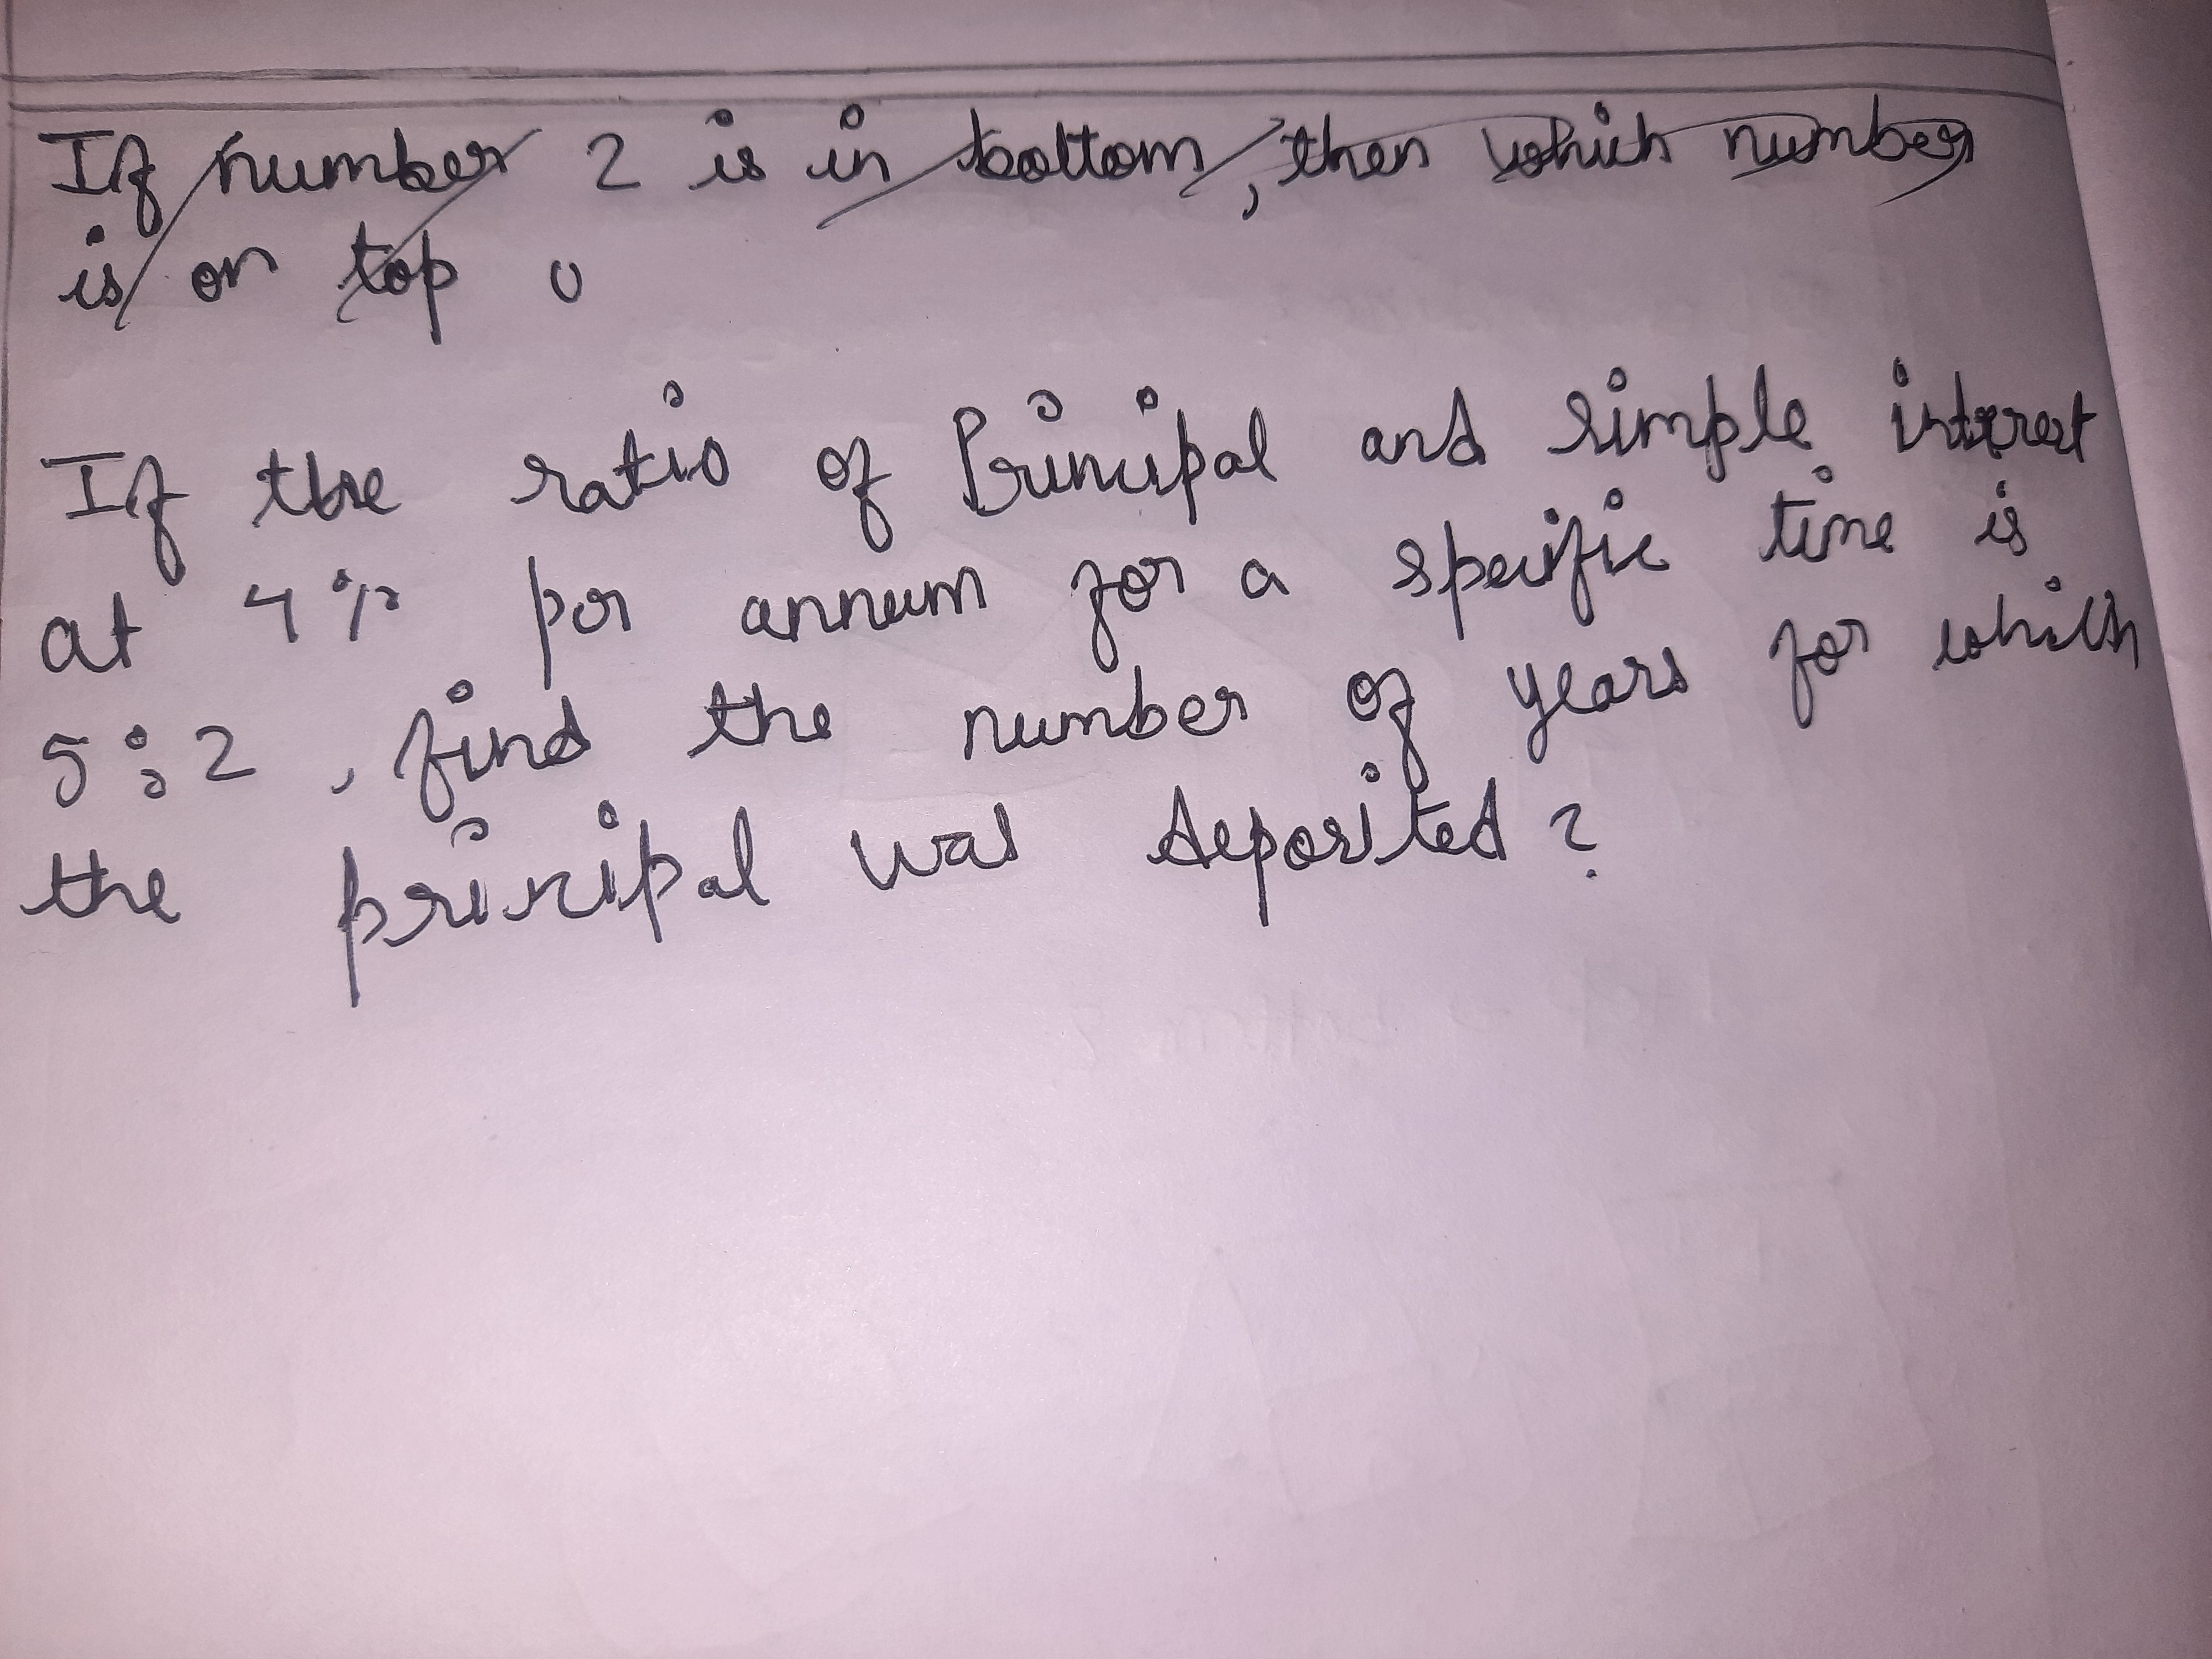 If number 2 is in bottom, then which number
is on top
If the ratio of Principal and simple interest
at 4% per annum for a specific time is
5:2, find the number of years for which
the principal was deposited?